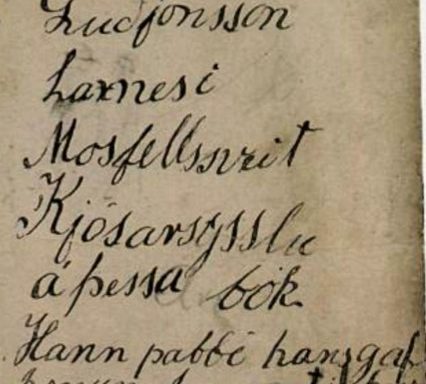 Gudjonsson
Laxnesi
Mosfellssveit
Kjósarsysslu
á þessa bók
Hann pabbi hans gaf